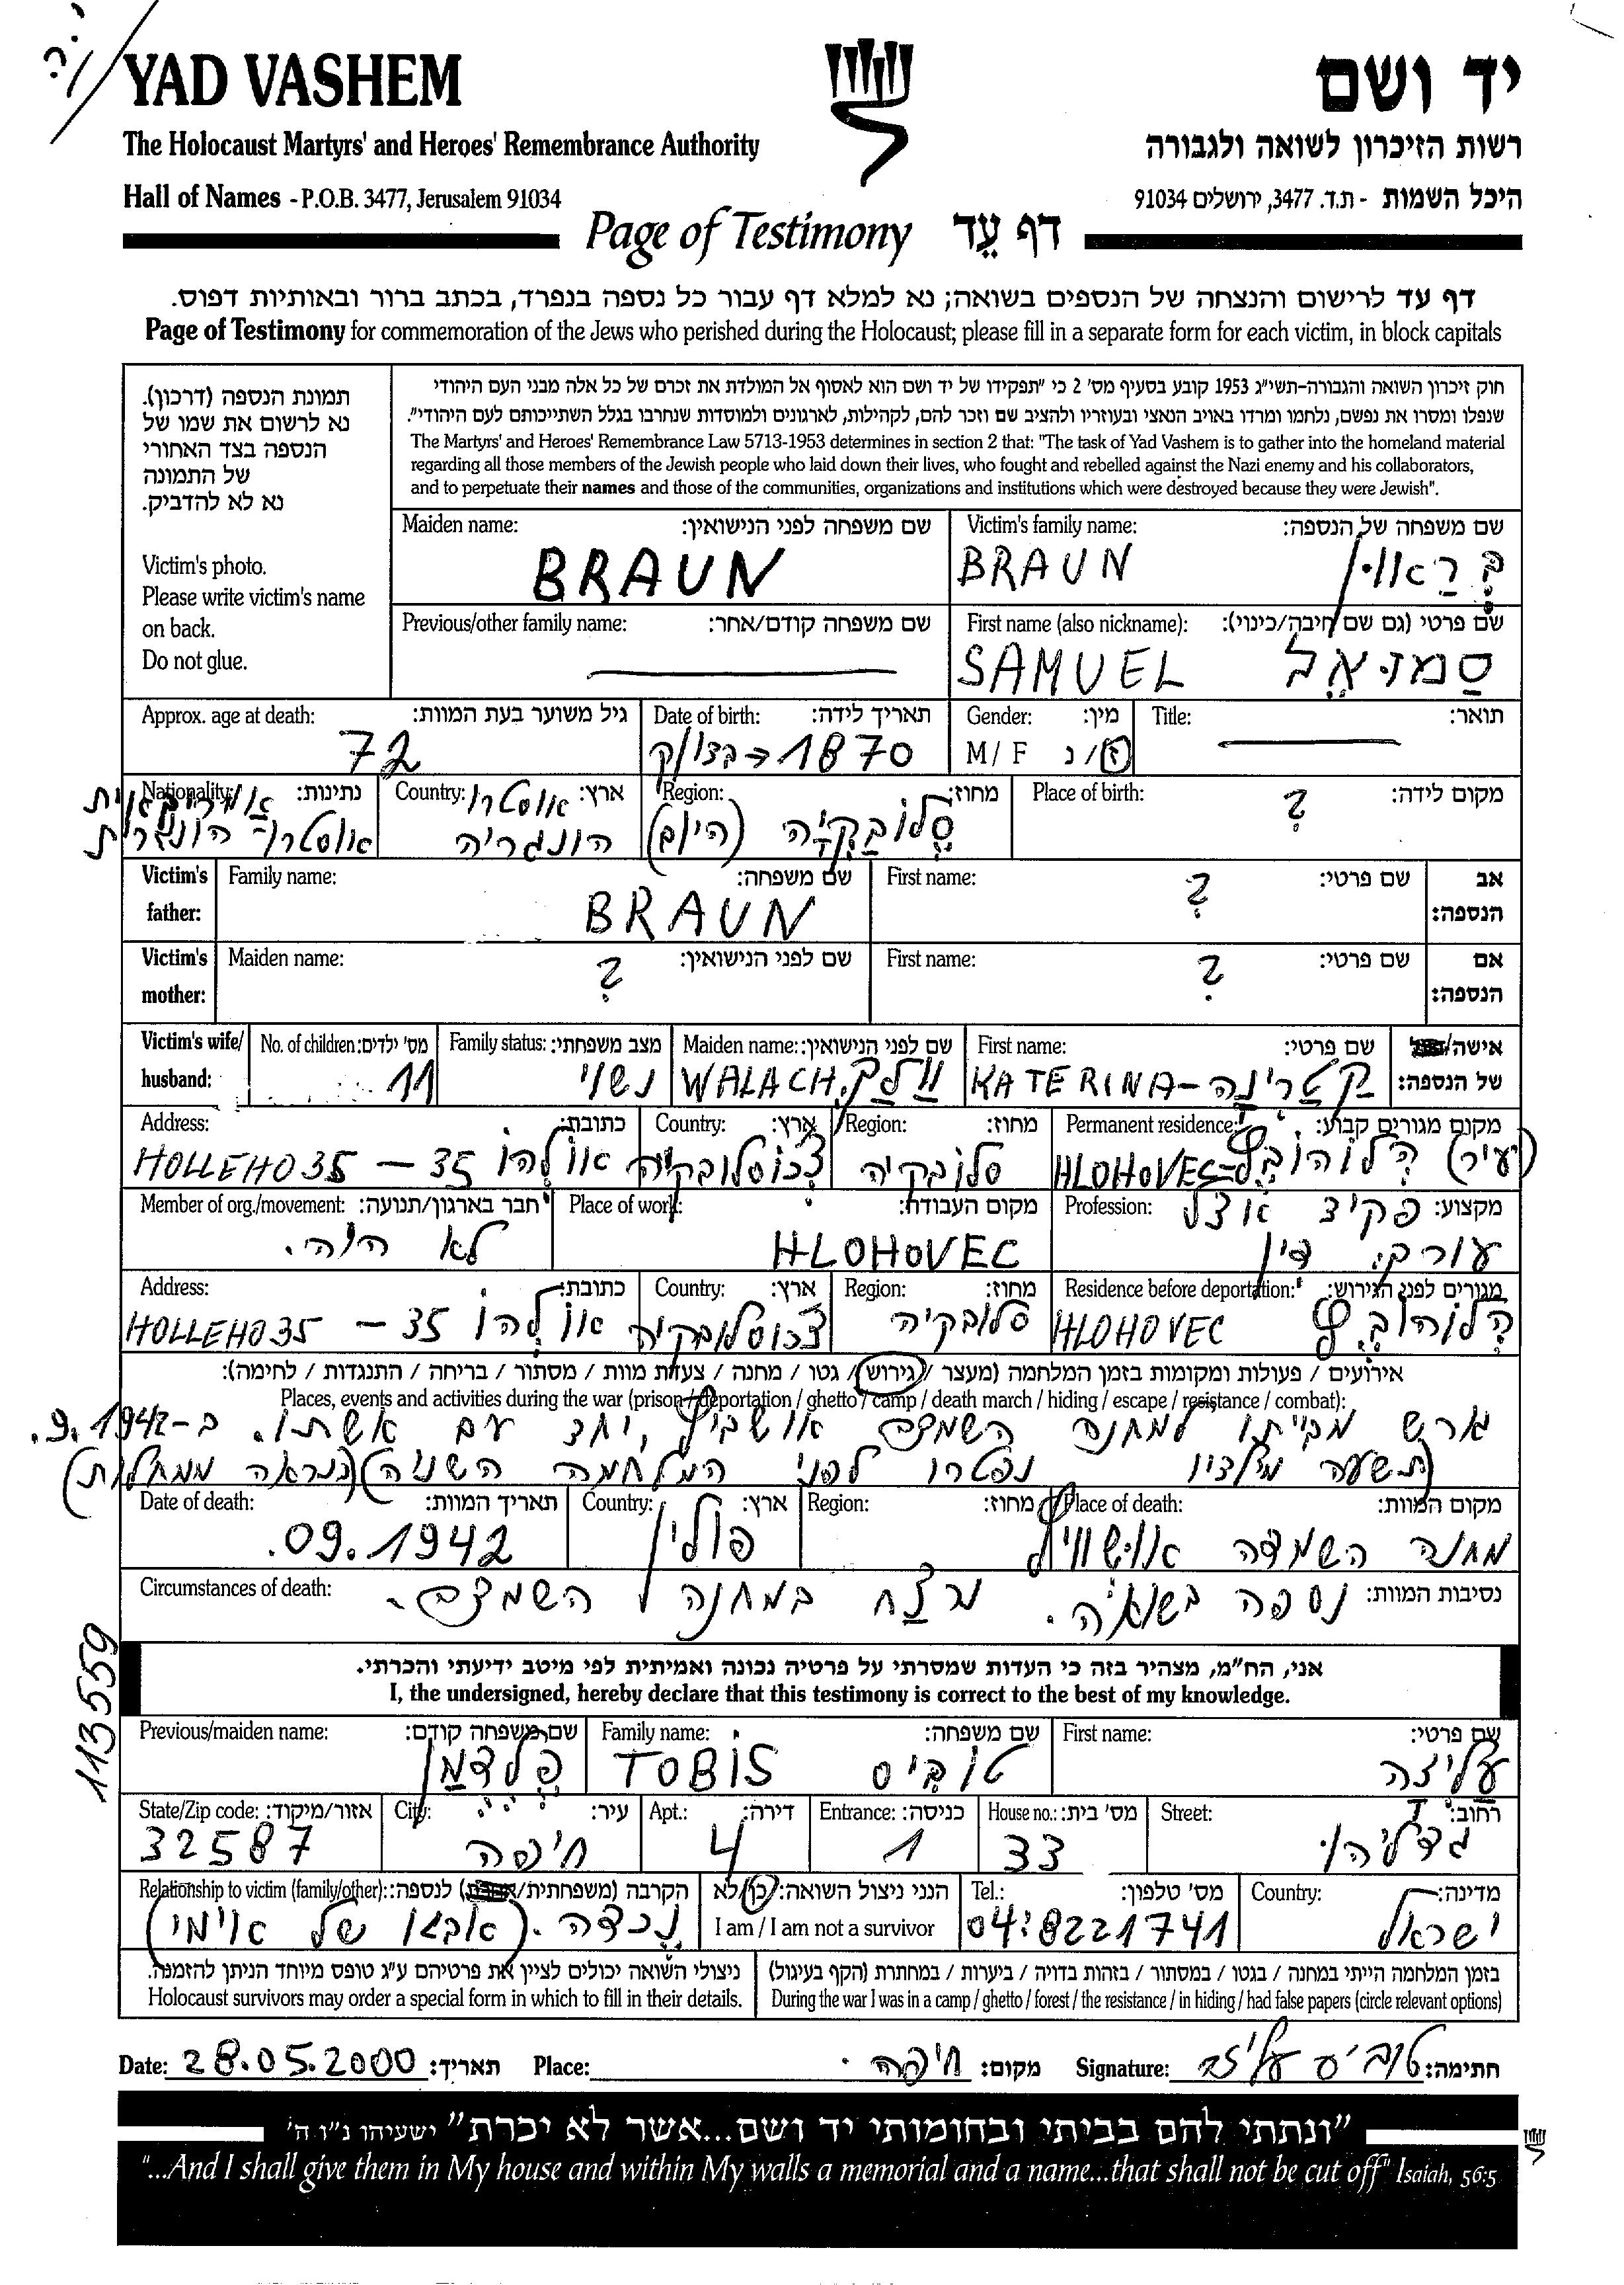 י.ה.
YAD VASHEM
יד ושם
The Holocaust Martyrs' and Heroes' Remembrance Authority
רשות הזיכרון לשואה ולגבורה
Hall of Names - P.O.B. 3477, Jerusalem 91034
היכל השמות - ת.ד. 3477, ירושלים 91034
Page of Testimony דף עֵד
דף עד לרישום והנצחה של הנספים בשואה; נא למלא דף עבור כל נספה בנפרד, בכתב ברור ובאותיות דפוס.
Page of Testimony for commemoration of the Jews who perished during the Holocaust; please fill in a separate form for each victim, in block capitals
תמונת הנספה (דרכון).
נא לרשום את שמו של
הנספה בצד האחורי
של התמונה
נא לא להדביק.
Victim's photo.
Please write victim's name
on back.
Do not glue.
חוק זיכרון השואה והגבורה-תשי"ג 1953 קובע בסעיף מס' 2 כי "תפקידו של יד ושם הוא לאסוף אל המולדת את זכרם של כל אלה מבני העם היהודי
שנפלו ומסרו את נפשם, נלחמו ומרדו באויב הנאצי ובעוזריו ולהציב שם וזכר להם, לקהילות, לארגונים ולמוסדות שנחרבו בגלל השתייכותם לעם היהודי".
The Martyrs' and Heroes' Remembrance Law 5713-1953 determines in section 2 that: "The task of Yad Vashem is to gather into the homeland material
regarding all those members of the Jewish people who laid down their lives, who fought and rebelled against the Nazi enemy and his collaborators,
and to perpetuate their names and those of the communities, organizations and institutions which were destroyed because they were Jewish".
Victim's family name: שם משפחה של הנספה:
BRAUN בְּרַאוּן
Maiden name: שם משפחה לפני הנישואין:
BRAUN
First name (also nickname): שם פרטי (גם שם חיבה/כינוי):
SAMUEL סַמוּאֶל
Previous/other family name: שם משפחה קודם/אחר:
Title: תואר:
Gender: מין:
M / F ז / נ
Date of birth: תאריך לידה:
1870
Approx. age at death: גיל משוער בעת המוות:
72
Place of birth: מקום לידה:
?
Region: מחוז:
סְלוֹבַקְיָה (היום)
Country: ארץ:
אוסטרו
הונגריה
Nationality: נתינות:
אוסטרו-הונגרית
Victim's father: אב הנספה:
First name: שם פרטי:
?
Family name: שם משפחה:
BRAUN
Victim's mother: אם הנספה:
First name: שם פרטי:
?
Maiden name: שם לפני הנישואין:
?
Victim's wife/ husband: אישה/ של הנספה:
First name: שם פרטי:
KATERINA - קַטֶרִינַה
Maiden name: שם לפני הנישואין:
WALACH וַלַך
Family status: מצב משפחתי:
נשוי
No. of children: מס' ילדים:
11
Permanent residence: מקום מגורים קבוע:
HLOHOVEC הְלוֹהוֹבֶץ (עיר)
Region: מחוז:
סלובקיה
Country: ארץ:
צ'כוסלובקיה
Address: כתובת:
HOLLEHO 35 - 35 אוֹלֶהוֹ
Profession: מקצוע:
פקיד אצל
עורך דין
Place of work: מקום העבודה:
HLOHOVEC
Member of org./movement: חבר בארגון/תנועה:
לא היה.
Residence before deportation: מגורים לפני הגירוש:
HLOHOVEC הְלוֹהוֹבֶץ
Region: מחוז:
סלובקיה
Country: ארץ:
צ'כוסלובקיה
Address: כתובת:
HOLLEHO 35 - 35 אוֹלֶהוֹ
אירועים / פעולות ומקומות בזמן המלחמה (מעצר / גירוש / גטו / מחנה / צעדת מוות / מסתור / בריחה / התנגדות / לחימה):
Places, events and activities during the war (prison / deportation / ghetto / camp / death march / hiding / escape / resistance / combat):
גורש מביתו למחנה השמדה אושביץ, יחד עם אשתו. ב-9.1942.
(תשעה מילדיו נפטרו לפני המלחמה השניה) (כנראה ממחלות)
Place of death: מקום המוות:
מחנה השמדה אושוויץ
Region: מחוז:
Country: ארץ:
פולין
Date of death: תאריך המוות:
09.1942.
Circumstances of death: נסיבות המוות:
נספה בשואה. נרצח במחנה השמדה.
113559
אני, הח"מ, מצהיר בזה כי העדות שמסרתי על פרטיה נכונה ואמיתית לפי מיטב ידיעתי והכרתי.
I, the undersigned, hereby declare that this testimony is correct to the best of my knowledge.
First name: שם פרטי:
עליזה
Family name: שם משפחה:
TOBIS טוֹבִּיס
Previous/maiden name: שם משפחה קודם:
פֶלדמַן
Street: רחוב:
גדליהו
House no.: מס' בית:
33
Entrance: כניסה:
1
Apt.: דירה:
4
City: עיר:
חיפה
State/Zip code: אזור/מיקוד:
32587
Country: מדינה:
ישראל
Tel.: מס' טלפון:
04:8221741
הנני ניצול השואה: כן/לא
I am / I am not a survivor
Relationship to victim (family/other): הקרבה (משפחתית/ ) לנספה:
נֶכדה. (אבא של אימי)
בזמן המלחמה הייתי במחנה / בגטו / במסתור / בזהות בדויה / ביערות / במחתרת (הקף בעיגול)
During the war I was in a camp / ghetto / forest / the resistance / in hiding / had false papers (circle relevant options)
ניצולי השואה יכולים לציין את פרטיהם ע"ג טופס מיוחד הניתן להזמנה.
Holocaust survivors may order a special form in which to fill in their details.
Date: 28.05.2000 תאריך: Place: חיפה מקום: Signature: טוביס עליזה חתימה:
"ונתתי להם בביתי ובחומותי יד ושם...אשר לא יכרת" ישעיהו נ"ו ה'
"...And I shall give them in My house and within My walls a memorial and a name...that shall not be cut off" Isaiah, 56:5